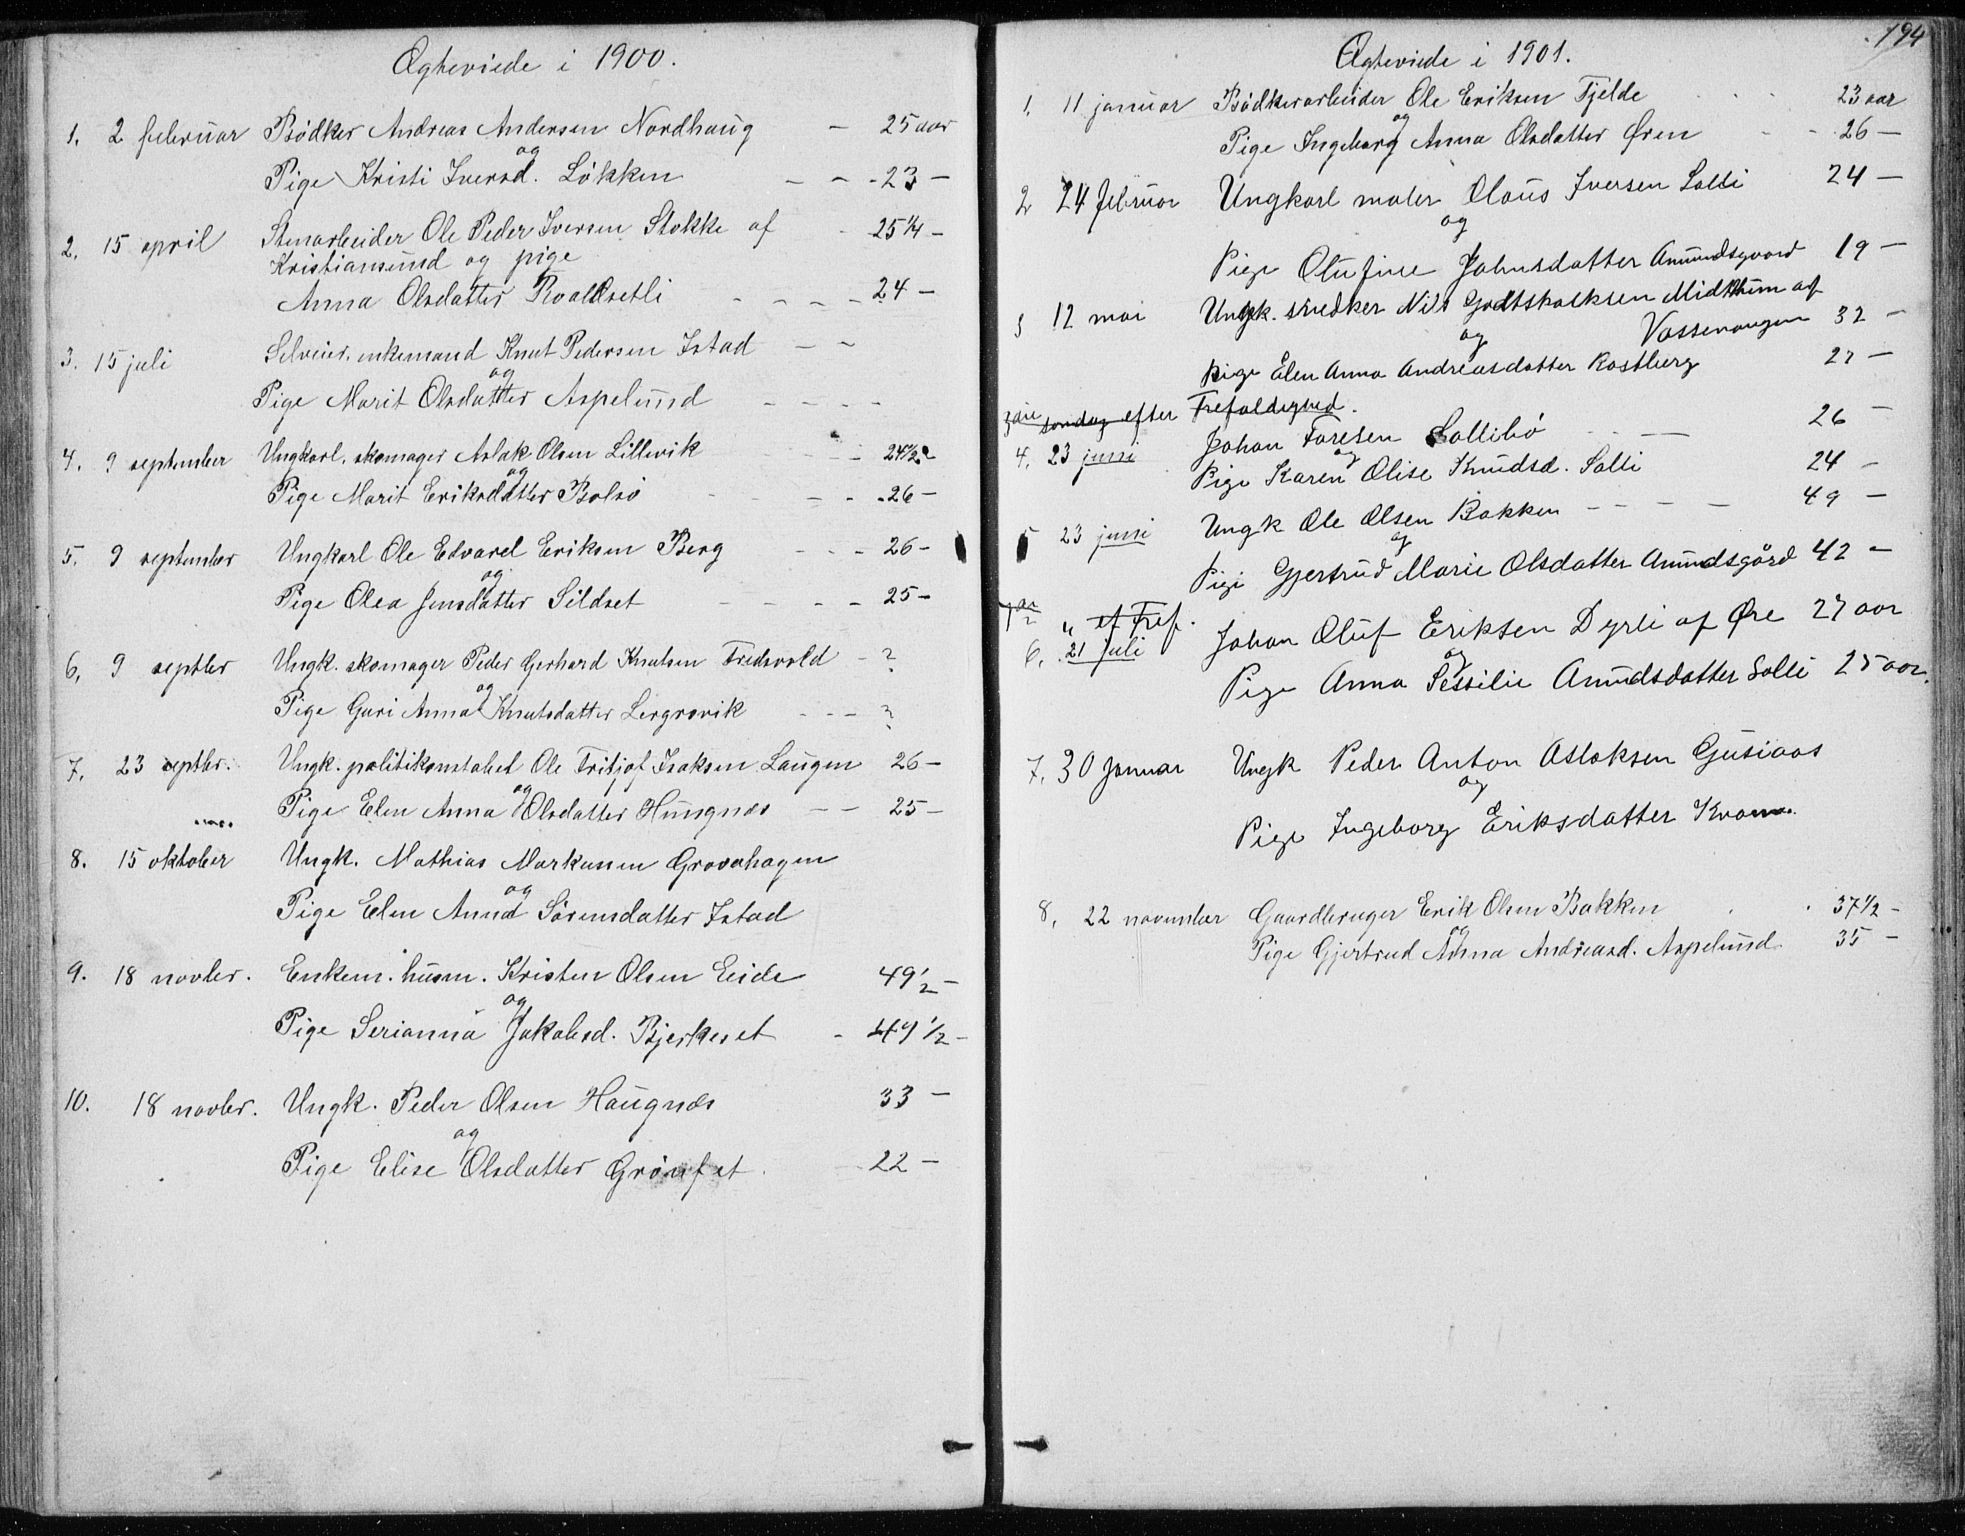 Ægteviede i 1900.
1. 2 februar Bødker Andreas Andersen Nordhaug – 25 aar
og
Pige Kristi Iversd. Løkken – – - 23 –
2. 15 april Stenarbeider Ole Peder Iversen Stokke af - 25 1/4 –
Kristiansund og pige
Anna Olsdatter Roaldsetli – – – – 24 –
3. 15 juli Selveier, enkemand Knut Pedersen Istad – –
og
Pige Marit Olsdatter Aspelund – – – –
4. 9 september Ungkarl. skomager Aslak Olsen Lillevik – – – 24 1/2 –
og
Pige Marit Eriksdatter Bolsø – – – - 26 –
5. 9 september Ungkarl Ole Edvard Eriksen Berg – – – 26 –
og
Pige Olea Jensdatter Sildset – – – – 25 –
6. 9 septbr Ungk. skomager Peder Gerhard Knutsen Fredsvold – ?
og
Pige Guri Anna Knutsdatter Lergrovik – – – ?
7. 23 septbr. Ungk. politikonstabel Ole Fritjof Isaksen Laugen 26 –
og
Pige Elen Anna Olsdatter Hungnæs – – 25 –
8. 15 oktober Ungk. Mathias Markussen Grovahagen
og
Pige Elen Anna Sørensdatter Istad
9. 18 novbr. Enkem. husm. Kristen Olsen Eide 49 1/2 –
og
Pige Serianna Jakobsd. Bjerkeset - 49 1/2 –
10. 18 novbr. Ungk. Peder Olsen Haugnæs 33 –
og
Pige Elise Olsdatter Grønset. 22 –
194
Ægteviede i 1901.
1. 11 januar Bødkerarbeider Ole Eriksen Fjelde - - - 23 aar
og
Pige Ingeborg Anna Olsdatter Øren - - 26 –
2 24 februar Ungkarl maler Olaus Iversen Solli 24 –
og
Pige Olufine Johnsdatter Amundsgaard 19 –
3 12 mai Ungk. snedker Nils Godtskalksen Midthun af
og Vossevangen 32 –
Pige Elen Anna Andreasdatter Rostberg 27 –
søndag efter Trefoldighed.
4. 23 juni Johan Toresen Sollibø – – 26 –
og
Pige Karen Olise Knudsd. Solli 24 –
5 23 juni Ungk Ole Olsen Bakken – – – – 49 –
og
Pige Gjertrud Marie Olsdatter Amundsgård 42 –
7de " ef Tref.
6. 21 juli Johan Oluf Eriksen Dyrli af Øre 27 aar
og
Pige Anna Sessilie Amundsdatter Solli 25 aar.
7. 30 Januar Ungk Peder Anton Aslaksen Gusiaas
og
Pige Ingeborg Eriksdatter Kvam.
8. 22 november Gaardbruger Erik Olsen Bakken - - 37 1/2 –
og
Pige Gjertrud Anna Andreasd. Aspelund 35 –